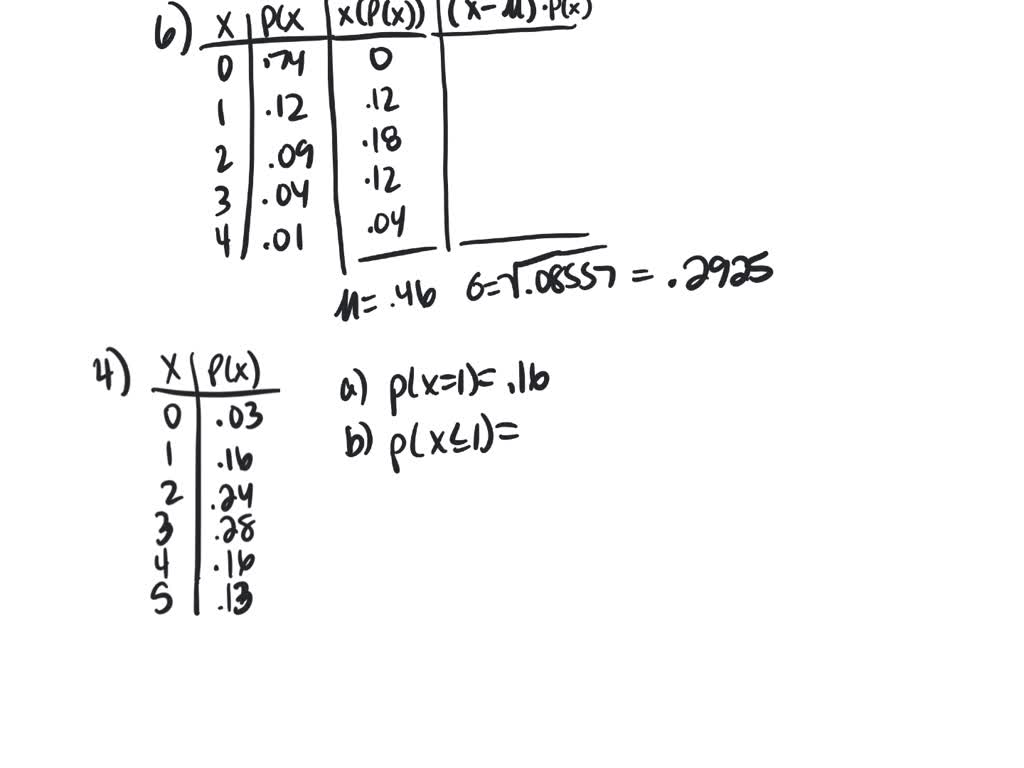 6) X P(X X(P(X)) (X-μ)·P(X)
0 .74 0
1 .12 .12
2 .09 .18
3 .04 .12
4 .01 .04
μ= .46 σ=√.08557 = .2925
4) X P(X) a) P(X=1)= .16
0 .03 b) P(X≤1)=
1 .16
2 .24
3 .28
4 .16
5 .13